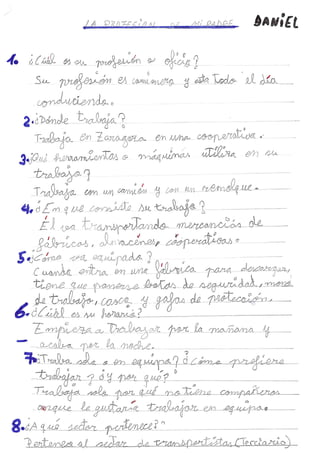 LA PROFESIÓN DE MI PADRE DANIEL
1. ¿Cuál es su profesión u oficio?
Su profesión es camionero y está todo el día
conduciendo.
2. ¿Dónde trabaja?
Trabaja en Zaragoza en una cooperativa.
3. ¿Qué herramientas o máquinas utiliza en su
trabajo?
Trabaja con un camión y con un remolque.
4. ¿En qué consiste su trabajo?
Él va transportando mercancías de
fábricas, almacenes, cooperativas.
5. ¿Cómo va equipado?
Cuando entra en una fábrica para descargar,
tiene que ponerse botas de seguridad, mono
de trabajo, casco y gafas de protección.
6. ¿Cuál es su horario?
Empieza a trabajar por la mañana y
acaba por la noche.
7. ¿Traba solo o en equipo? ¿Cómo prefiere
trabajar? ¿Y por qué?
Trabaja solo por qué no tiene compañeros
aunque le gustaría trabajar en equipo.
8. ¿A qué sector pertenece?
Pertenece al sector de transportistas (Terciario)